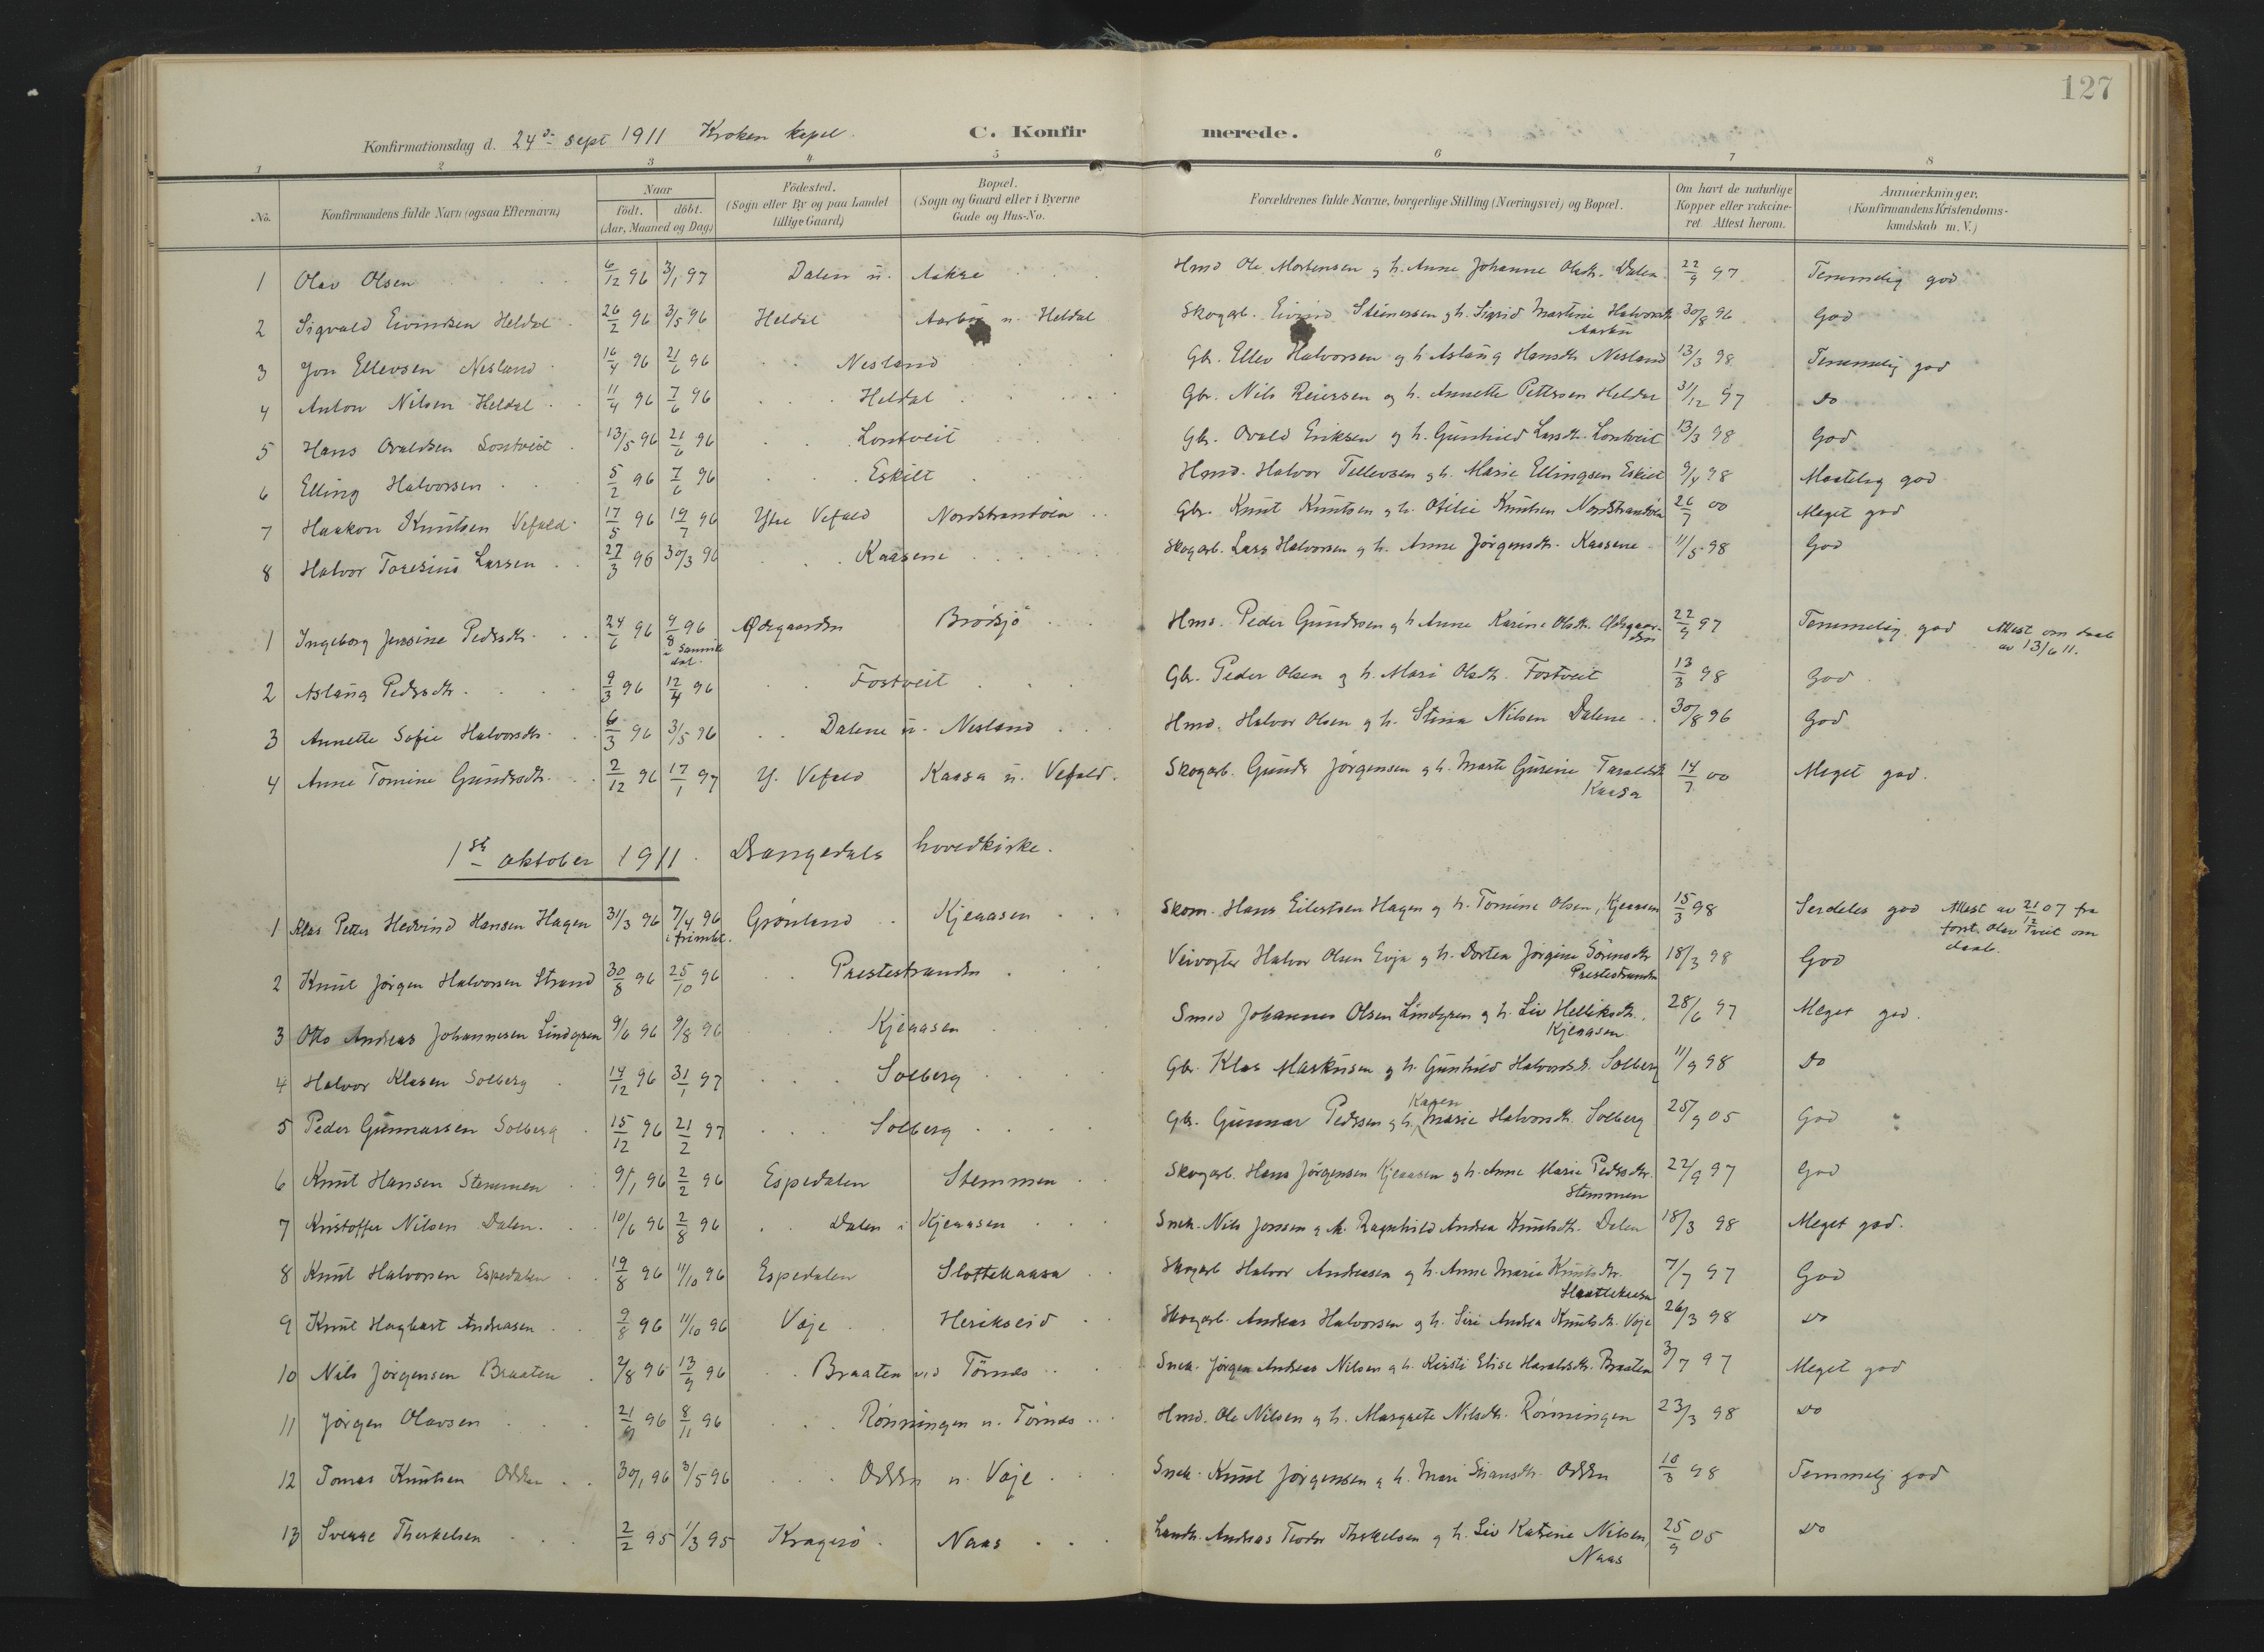 127
Konfirmationsdag d. 24de sept 1911 Kroken kapel. C. Konfirmerede.
1 2 3 4 5 6 7 8
No. Konfirmandens fulde Navn (ogsaa Efternavn) Naar födt. döbt. (Aar, Maaned og Dag) Födested. (Sogn eller By og paa Landet tillige Gaard) Bopæl. (Sogn og Gaard eller i Byerne Gade og Hus-No. Forældrenes fulde Navne, borgerlige Stilling (Næringsvei) og Bopæl. Om havt de naturlige Kopper eller vakcineret Attest herom. Anmærkninger. (Konfirmandens Kristendomskundskab m. V.)
1 Olav Olsen 6/12 96 3/1 97 Dalen u. Aakre Hmd Ole Mortensen g h. Anne Johanne Olsdr. Dalen 22/9 97 Temmelig god
2 Sigvald Eivindsen Heldal 26/2 96 3/5 96 Heldal Aarbu u. Heldal Skogarb. Eivind Steinersen g h. Sigrid Martine Halvorsdr Aarbu 30/8 96 God
3 Jon Ellevsen Nesland 16/4 96 21/6 96 Nesland Gbr. Ellev Halvorsen og h Aslaug Hansdr Nesland 13/3 98 Temmelig god
4 Anton Nilsen Heldal 11/4 96 7/6 96 Heldal Gbr. Nils Reiersen og h. Annette Pettersen Heldal 31/12 97 Do
5 Hans Ovaldsen Lontveit 13/5 96 21/6 96 Lontveit Gbr. Ovald Eriksen og h. Gunhild Larsdr. Lontveit 13/3 98 God
6 Elling Halvorsen 5/2 96 7/6 96 Eskilt Hmd. Halvor Tellevsen g h. Marie Ellingsen Eskilt 9/4 98 Maatelig god
7 Haakon Knutsen Vefald 17/5 96 19/7 96 Ytre Vefald Nordstrandöia Gbr. Knut Knutsen g h. Otilie Knutsen Nordstrandöia 26/7 00 Meget god
8 Halvor Toresius Larsen 27/3 96 30/3 96 Kaasene Skogarb. Lars Halvorsen g h. Anne Jörgensdr. Kaasene 11/5 98 God
1 Ingeborg Jensine Pedersdr. 24/6 96 9/8 96 i Sannikdal. Ødegaarden Brödsjö Hmd. Peder Gundersen g h Anne Karine Olsdr. Ødegaarden 22/9 97 Temmelig god Attest om daab av 13/6 11.
2 Aslaug Pedersdr. 9/3 96 12/4 96 Fostveit Gbr. Peder Olsen g h. Mari Olsdr. Fostveit 13/3 98 God
3 Annette Sofie Halvorsdr. 6/3 96 3/5 96 Dalene u. Nesland Hmd. Halvor Olsen g h. Stina Nilsen Dalene 30/8 96 God
4 Anne Tomine Gundersdr. 2/12 96 17/1 97 Y. Vefald Kaasa u. Vefald. Skogarb. Gunder Jörgensen g h. Marte Gurine Taraldsdr Kaasa 14/7 00 Meget god.
1ste oktober 1911. Drangedals hovedkirke.
1 Klas Petter Hedvind Hansen Hagen 31/3 96 7/4 96 i frimet. Grönland Kjeaasen Skom. Hans Eilertsen Hagen g h. Tomine Olsen, Kjeaasen 15/3 98 Serdeles god Attest av 21/12 07 fra forst. Olav Tveit om daab.
2 Knut Jörgen Halvorsen Strand 30/8 96 25/10 96 Prestestranden Veivogter Halvor Olsen Evja g h. Dortea Jörgine Sörensdr Prestestranden 18/3 98 God
3 Otto Andreas Johannesen Lindgren 9/6 96 9/8 96 Kjeaasen Smed Johannes Olsen Lindgren g h. Liv Helliksdr. Kjeaasen 28/6 97 Meget god.
4 Halvor Klasen Solberg 14/12 96 31/1 97 Solberg Gbr. Klas Markusen g h. Gunhild Halvorsdr. Solberg 11/9 98 Do
5 Peder Gunnarsen Solberg 15/12 96 21/2 97 Solberg Gbr. Gunnar Pedersen g h. Karen Marie Halvorsdr. Solberg 25/9 05 God
6 Knut Hansen Stemmen 9/1 96 2/2 96 Espedalen Stemmen Skogarb. Hans Jörgensen Kjeaasen g h. Anne Marie Pedersdr. Stemmen 22/9 97 God
7 Kristoffer Nilsen Dalen. 10/6 96 2/8 96 Dalen i Kjeaasen Snek. Nils Jensen g h. Ragnhild Andrea Knutsdr. Dalen 18/3 98 Meget god.
8 Knut Halvorsen Espedalen 19/8 96 11/10 96 Espedalen Slottekaasa Skogarb Halvor Andreasen g h. Anne Marie Knutsdr. Slaattekaasa 7/7 97 God
9 Knut Hagbart Andreasen 9/8 96 11/10 96 Voje Herikseid Skogarb. Andreas Halvorsen g h. Siri Andrea Knutsdr. Voje 26/3 98 Do
10 Nils Jörgensen Braaten 2/8 96 13/9 96 Braaten ved Törnes Snek. Jörgen Andreas Nilsen g h. Kirsti Elise Haraldsdr. Braaten 3/7 97 Meget god
11 Jörgen Olavsen 21/9 96 8/11 96 Rönningen u. Törnes Hmd. Ole Nilsen g h. Margrete Nilsdr. Rönningen 23/3 98 Do
12 Tomas Knutsen Odden 30/1 96 3/5 96 Odden u. Voje Snek. Knut Jörgensen g h. Mari Odden 10/3 98 Temmelig god
13 Sverre Therkelsen 2/2 95 1/3 95 Kragerö Naas Landh. Andreas Teodor Therkelsen g h. Liv Katrine Nilsen, Naas 25/9 05 Do